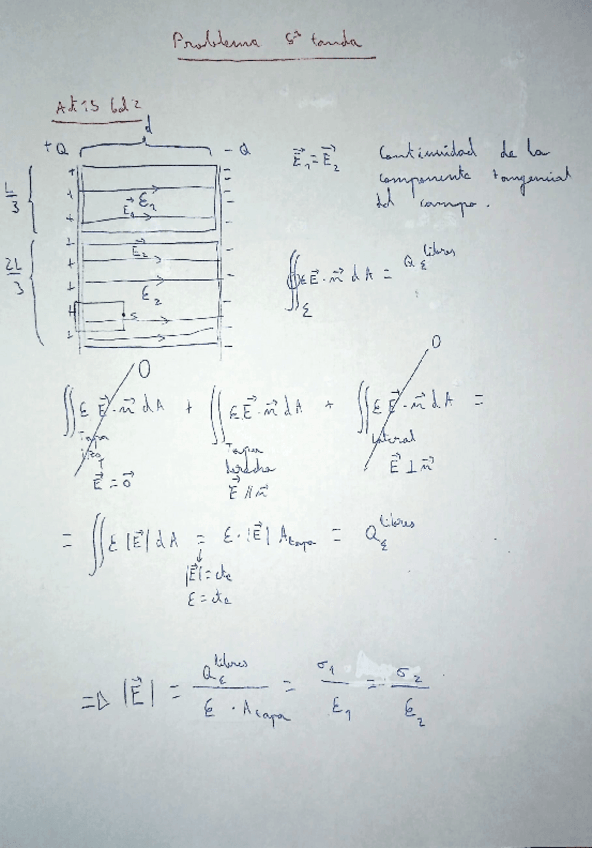 Problema 5ª tanda
d
+Q
- Q
L/3
2L/3
E⃗₁ ε₁
E⃗₂
ε₂
s
E⃗₁ = E⃗₂
Continuidad de la
componente tangencial
del campo.
∯_Σ ε E⃗ · n⃗ dA = Q_Σ^libres
∬ ε E⃗ · n⃗ dA + ∬ ε E⃗ · n⃗ dA + ∬ ε E⃗ · n⃗ dA =
0
0
Tapa
izq
E⃗ = 0⃗
Tapa
derecha
E⃗ // n⃗
lateral
E⃗ ⊥ n⃗
= ∬ ε |E⃗| dA = ε · |E⃗| A_tapa = Q_Σ^libres
|E⃗| = cte
ε = cte
=> |E⃗| = Q_Σ^libres / (ε · A_tapa) = σ₁/ε₁ = σ₂/ε₂